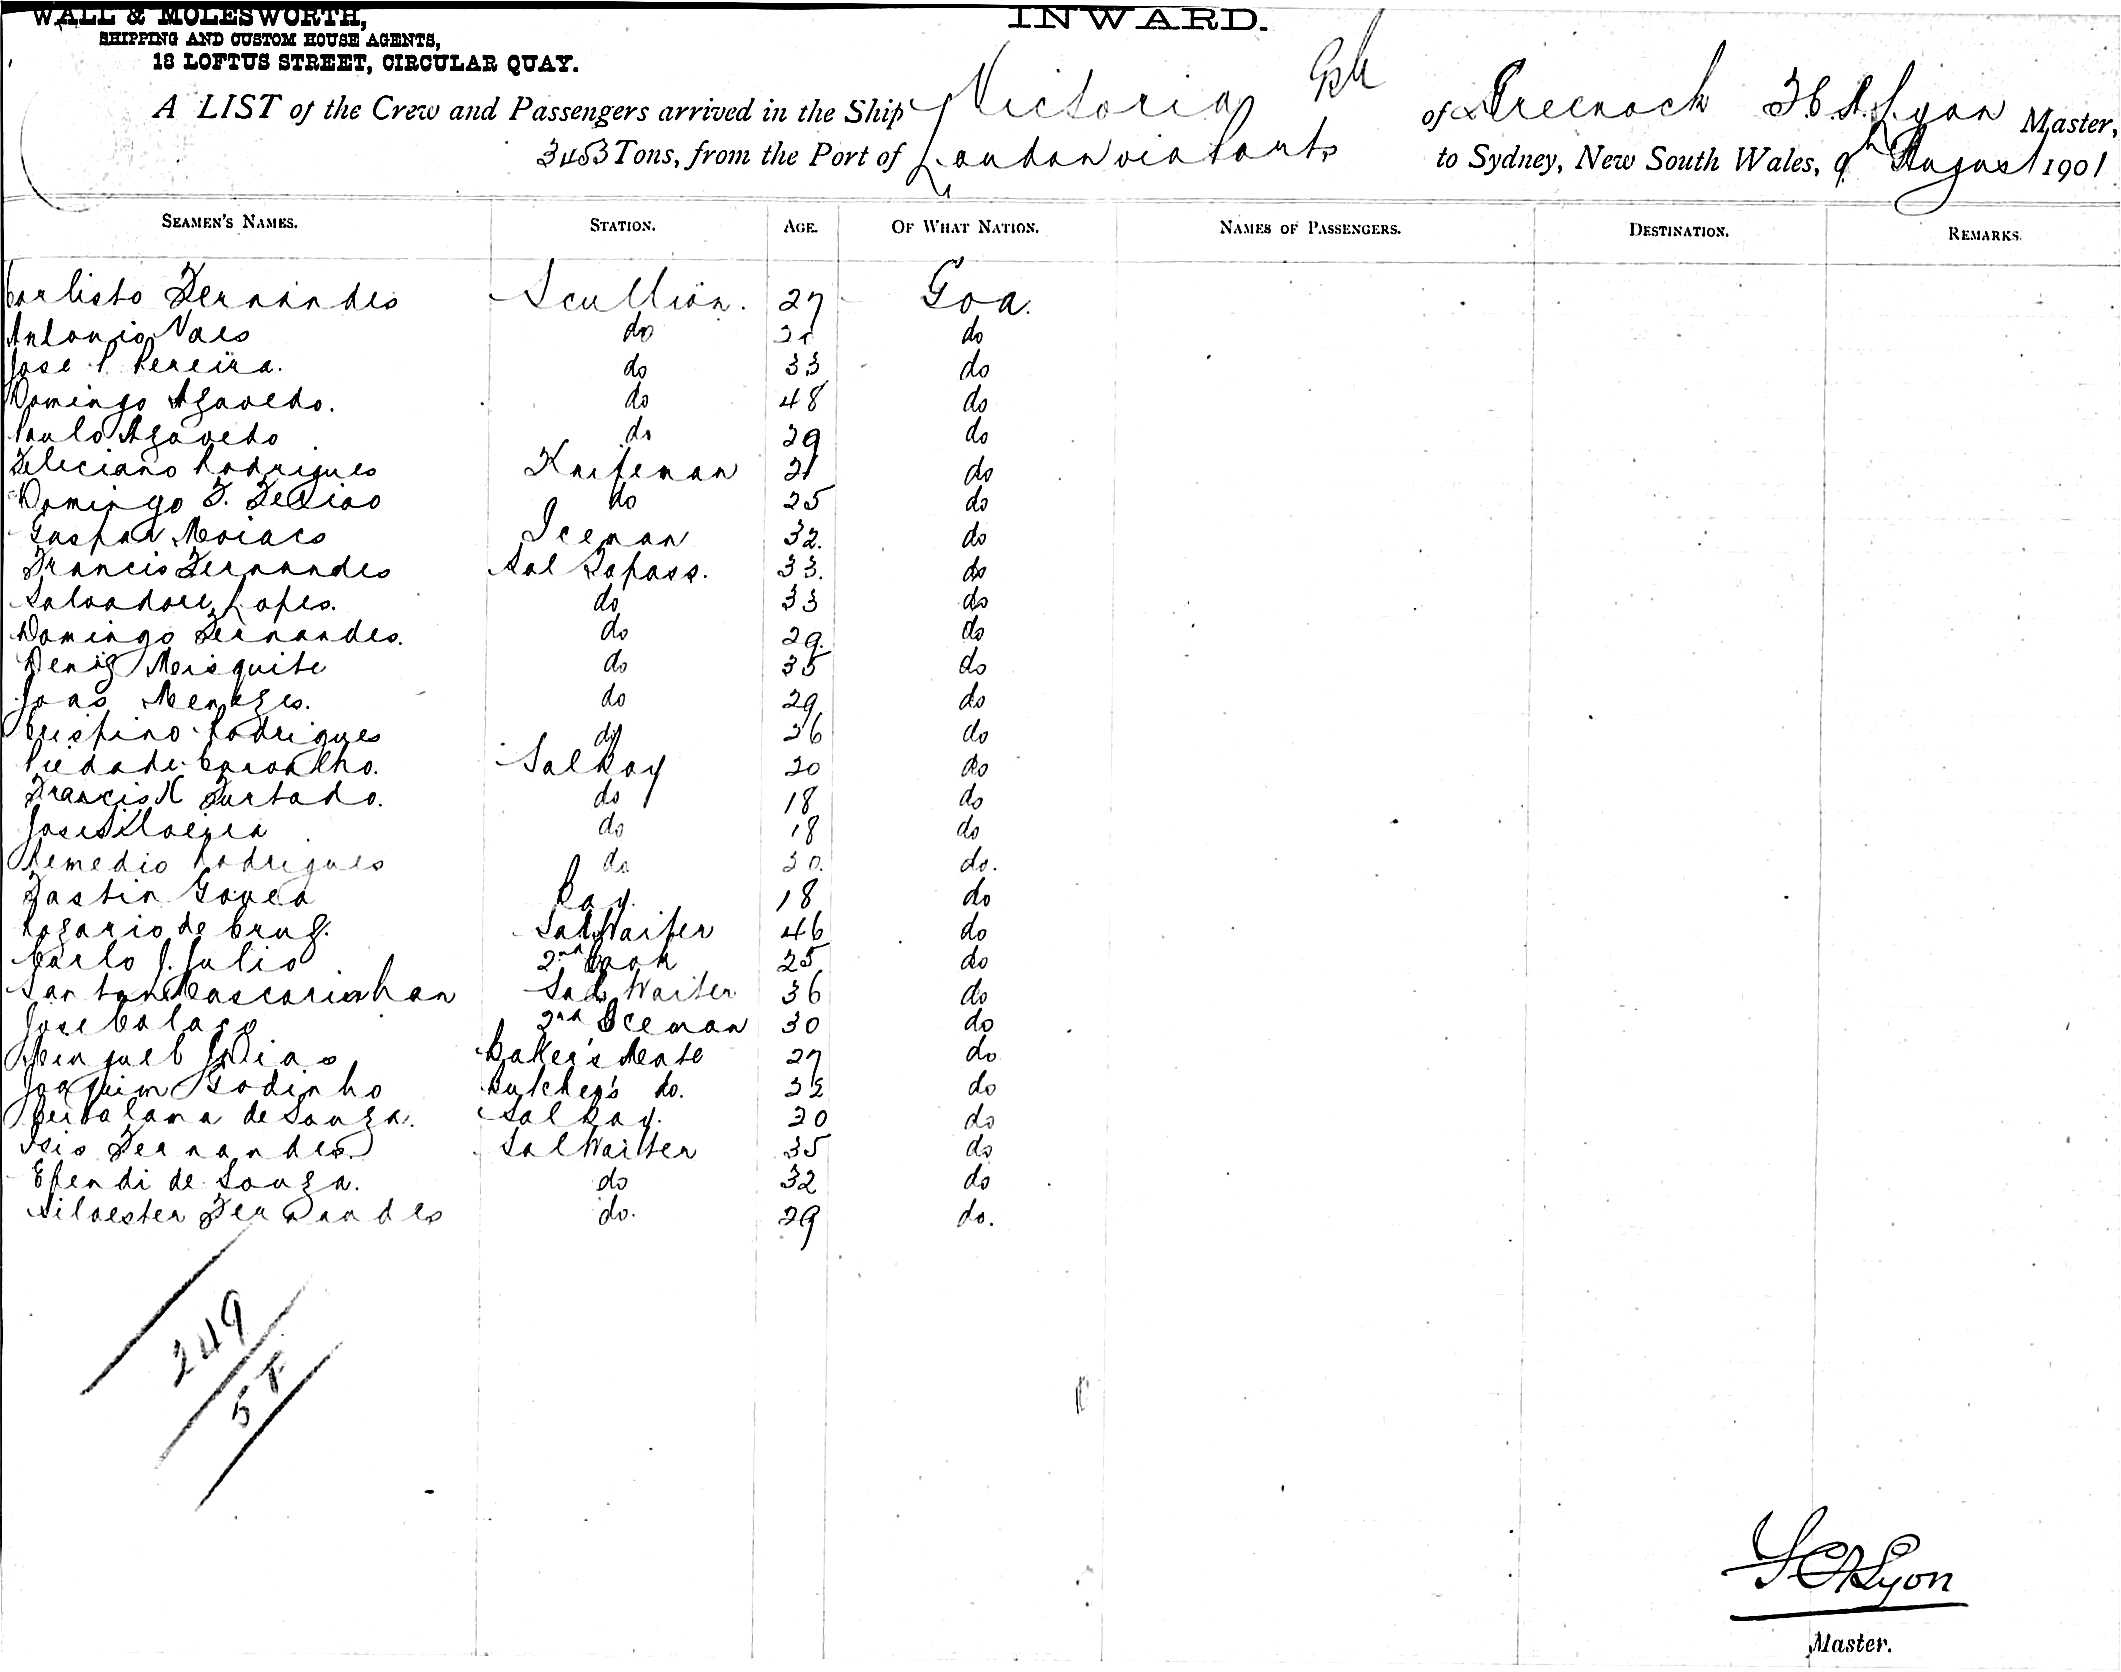 WALL & MOLESWORTH,
SHIPPING AND CUSTOM HOUSE AGENTS,
18 LOFTUS STREET, CIRCULAR QUAY.
INWARD.
A LIST of the Crew and Passengers arrived in the Ship Victoria of Greenock Lyon Master,
3453 Tons, from the Port of London via Ports to Sydney, New South Wales, 9th August 1901
SEAMEN'S NAMES. STATION. AGE. OF WHAT NATION. NAMES OF PASSENGERS. DESTINATION. REMARKS.
Carlisto Fernandes Scullion. 27 Goa.
Antonio Vaes do do
Jose P. Pereira. do 33 do
Domingo Azavedo. do 48 do
Paulo Azavedo do 29 do
Feliciano Rodrigues Knifeman 21 do
Domingo F. do 25 do
Gaspar Iceman 32. do
Francis Fernandes Sal Topass. 33. do
Salvadore Lopes. do 33 do
Domingo Fernandes. do 29. do
Deniz Mesquite do 35 do
Joas Menezes. do 29 do
Crispino Rodrigues do 36 do
Piedade Carvalho. Sal Boy 20 do
Francis X Furtado. do 18 do
Jose Silveira do 18 do
Remedio Rodrigues do 30. do.
Gouea Boy. 18 do
Rozario de Cruz. Sal Waiter 46 do
Carlo J. Julio 2nd Cook 25 do
Santan Mascarinhan Sal Waiter 36 do
Jose Colaco 2nd Iceman 30 do
Minguel J Dias Baker's Mate 27 do
Joaquim Godinho Butcher's do. 32 do
de Souza. Sal Boy. 20 do
Fernandes. Sal Waiter 35 do
de Souza. do 32 do
Silvester Fernandes do. 29 do.
249
58
Lyon
Master.